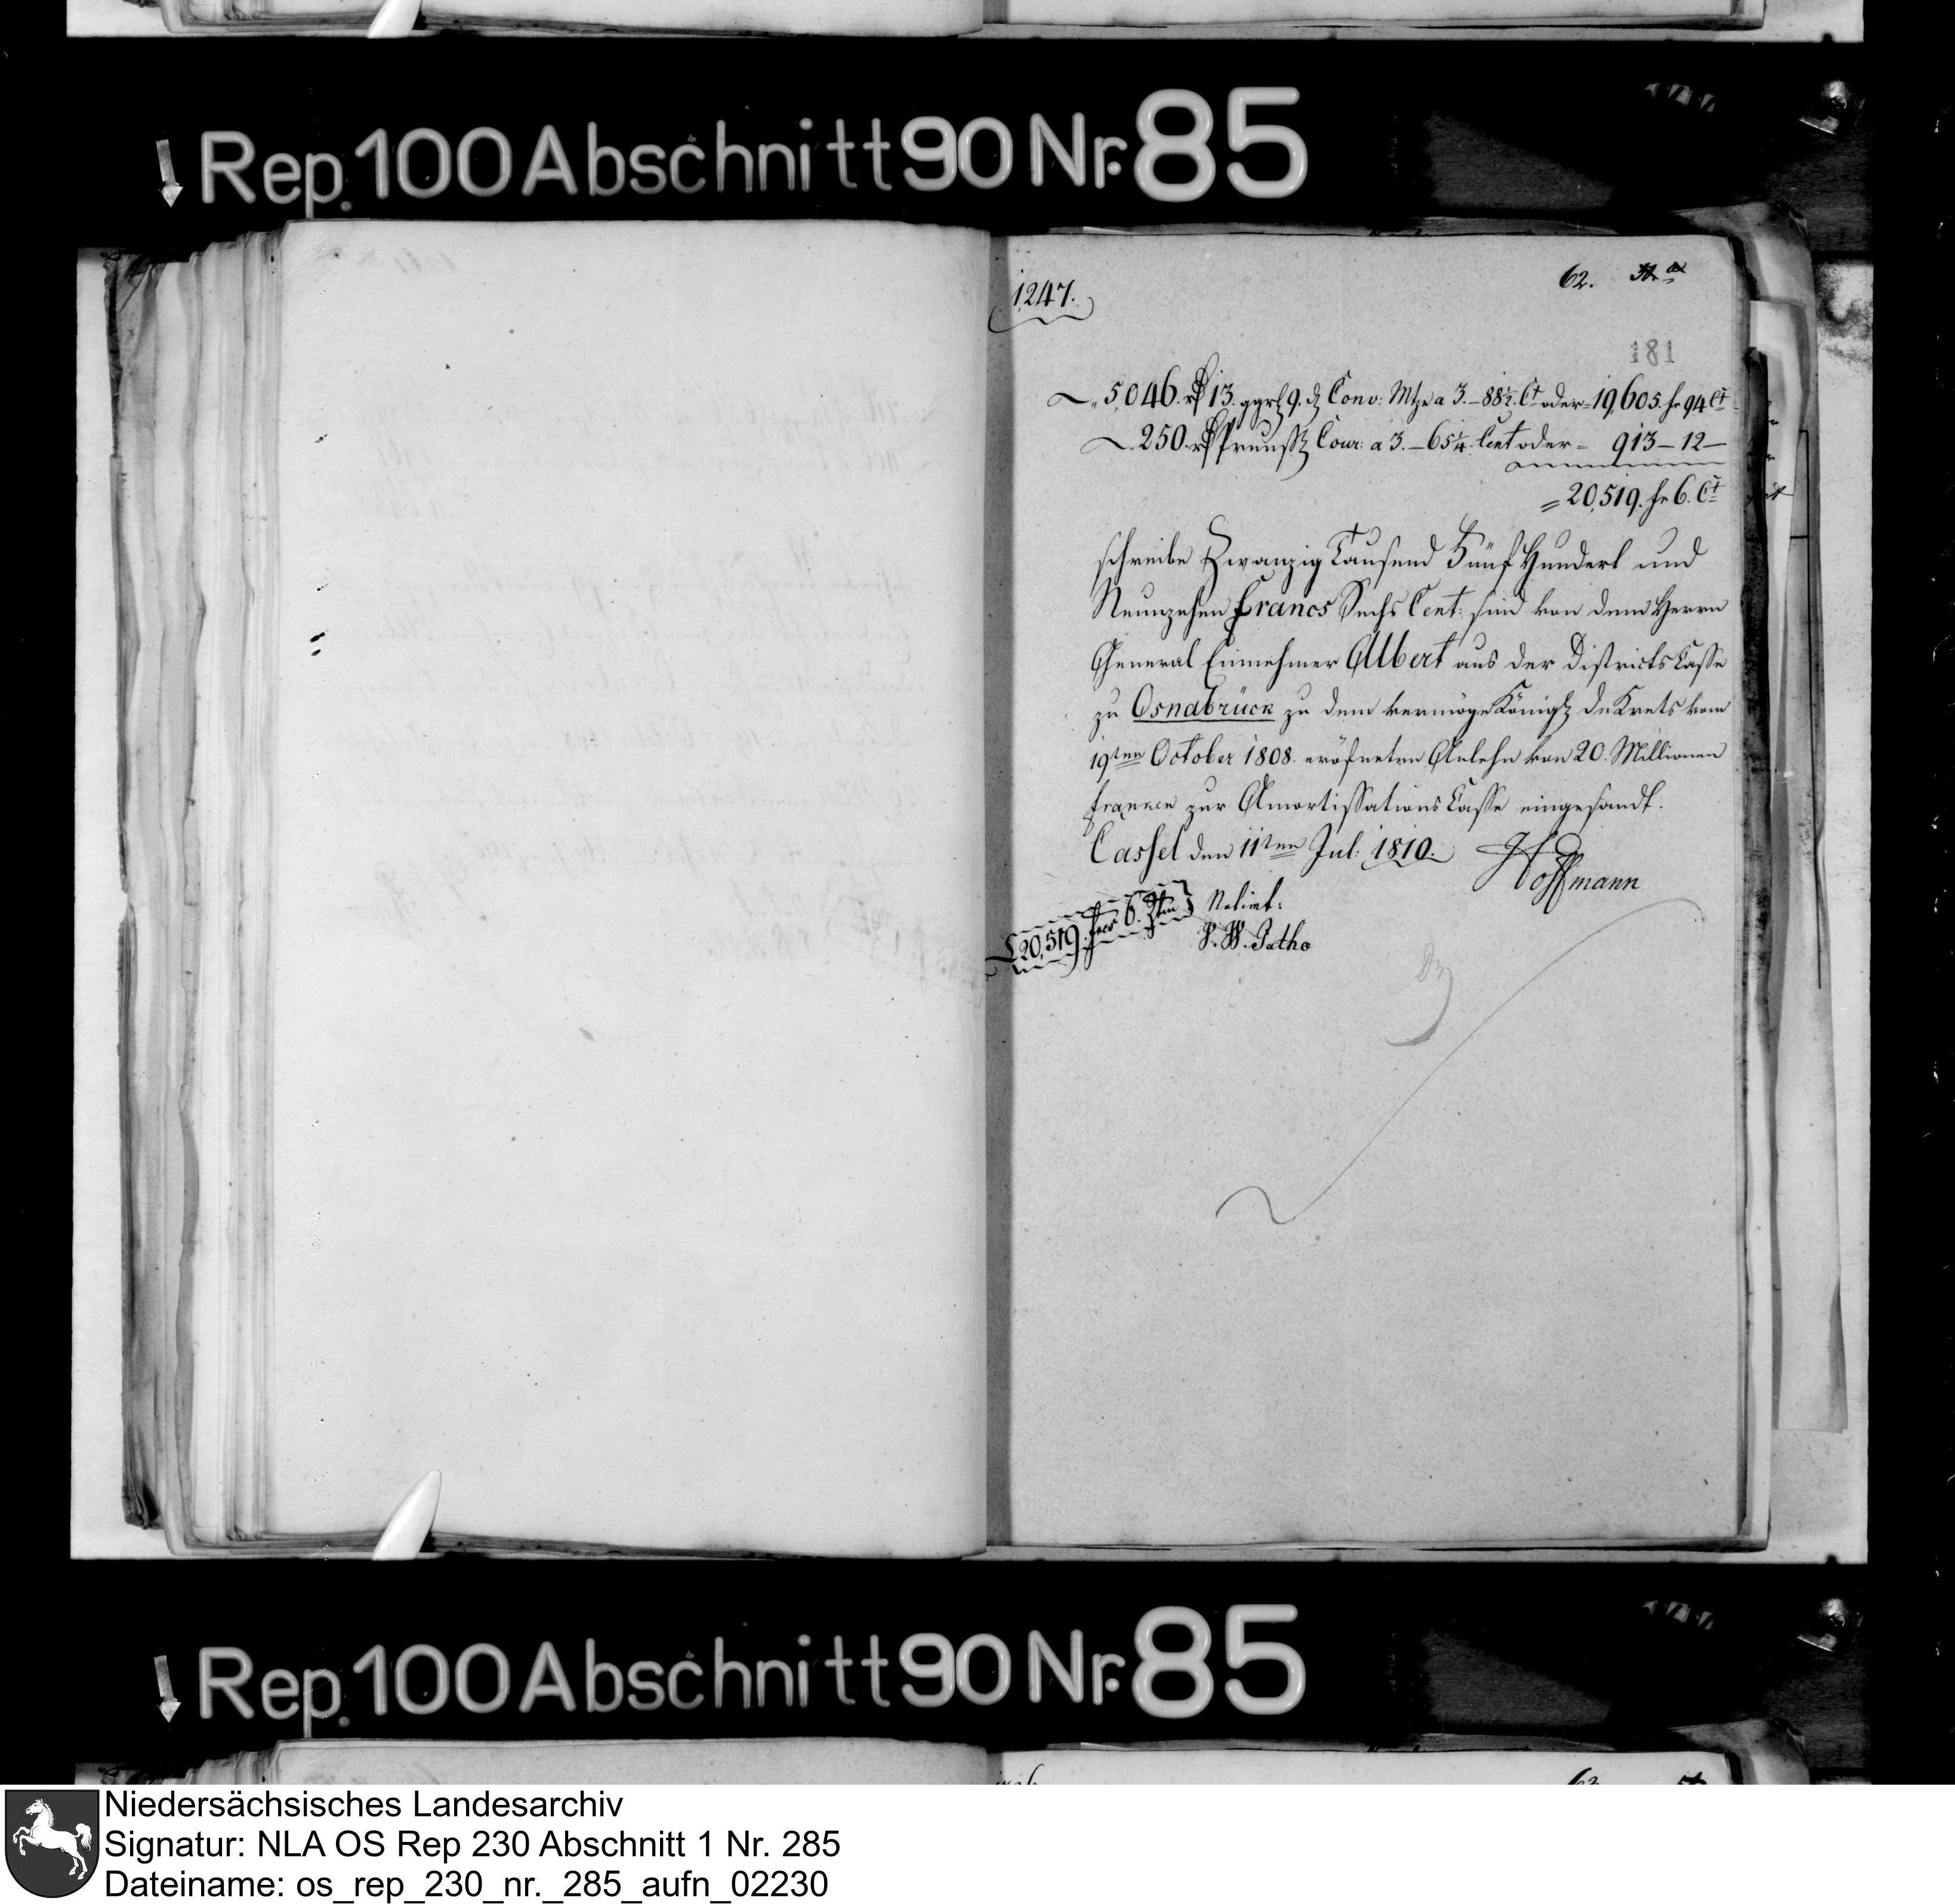 Rep. 100 Abschnitt 90 Nr. 85
1247.
62.
181
5,046. rß 13. ggrl 9. d Conv: Mze a 3.-88½. Ct oder = 19,605. fr 94 Ct
250. rß Preuss Cour: a 3.-65¼. Cent oder = 913-12-
= 20,519. fr 6. Ct
schreibe Zwanzig Tausend Fünf Hundert und
Neunzehen Francs Sechs Cent: sind von dem Herrn
General Einnehmer Albert aus der Districts Casse
zu Osnabrück zu dem vermöge Königl DeKrets vom
19ten October 1808. eröfneten Anlehn von 20. Millionen
franken zur Amortissations Casse eingesandt.
Cassel den 11ten Jul: 1810.
Hoffmann
20,519. frcs 6. Ctm
Notirt:
Rep. 100 Abschnitt 90 Nr. 85
Niedersächsisches Landesarchiv
Signatur: NLA OS Rep 230 Abschnitt 1 Nr. 285
Dateiname: os_rep_230_nr._285_aufn_02230